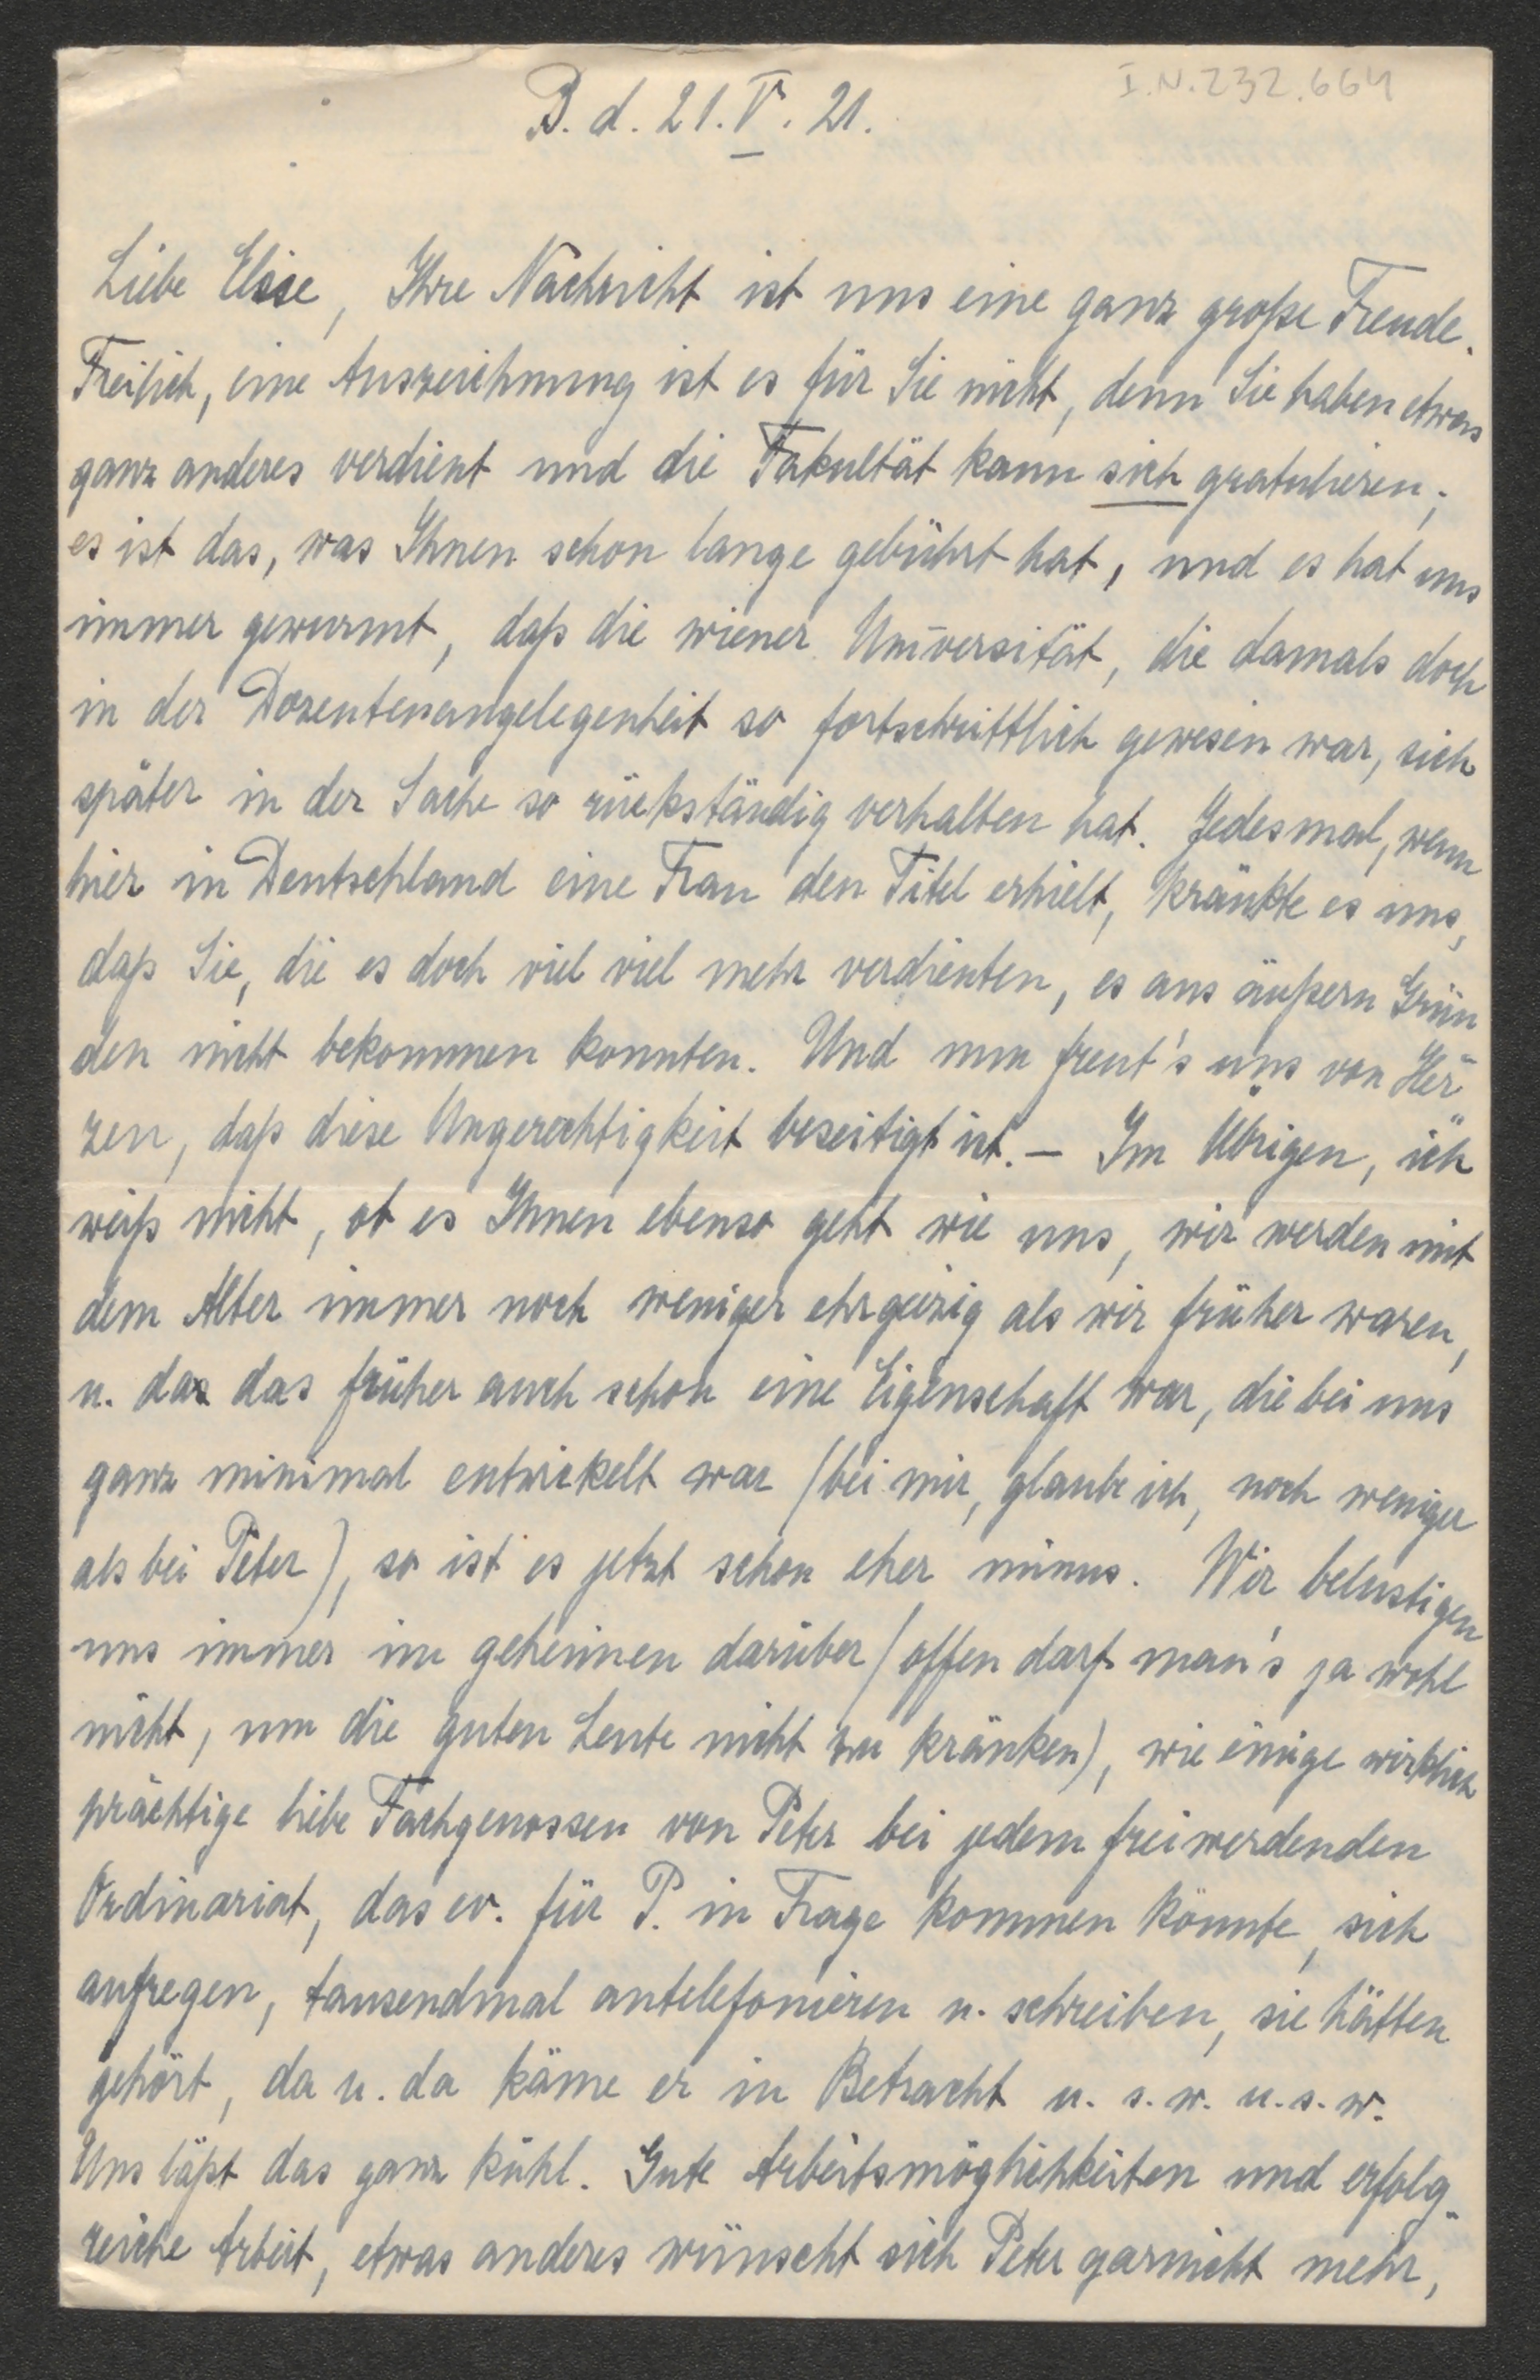 I.N.232.664
B. d. 21. V. 21.
Liebe Elise, Ihre Nachricht ist uns eine ganz große Freude.
Freilich, eine Auszeichnung ist es für Sie nicht, denn Sie haben etwas
ganz anderes verdient und die Fakultät kann sich gratulieren;
es ist das, was Ihnen schon lange gebührt hat, und es hat uns
immer gewurmt, daß die wiener Universität, die damals doch
in der Dozentenangelegenheit so fortschrittlich gewesen war, sich
später in der Sache so rückständig verhalten hat. Jedesmal, wenn
hier in Deutschland eine Frau den Titel erhielt, kränkte es uns,
daß Sie, die es doch viel viel mehr verdienten, es aus äußern Grün
den nicht bekommen konnten. Und nun freut's uns von Her-
zen, daß diese Ungerechtigkeit beseitigt ist. — Im Übrigen, ich
weiß nicht, ob es Ihnen ebenso geht wie uns, wir werden mit
dem Alter immer noch weniger ehrgeizig als wir früher waren,
u. da das früher auch schon eine Eigenschaft war, die bei uns
ganz minimal entwickelt war (bei mir, glaube ich, noch weniger
als bei Peter), so ist es jetzt schon eher minus. Wir belustigen
uns immer im geheimen darüber (offen darf man's ja wohl
nicht, um die guten Leute nicht zu kränken), wie einige wirklich
prächtige liebe Fachgenossen von Peter bei jedem freiwerdenden
Ordinariat, das ev. für P. in Frage kommen könnte, sich
aufregen, tausendmal antelefonieren u. schreiben, sie hätten
gehört, da u. da käme er in Betracht u. s. w. u. s. w.
Uns läßt das ganz kühl. Gute Arbeitsmöglichkeiten und erfolg-
reiche Arbeit, etwas anderes wünscht sich Peter garnicht mehr,